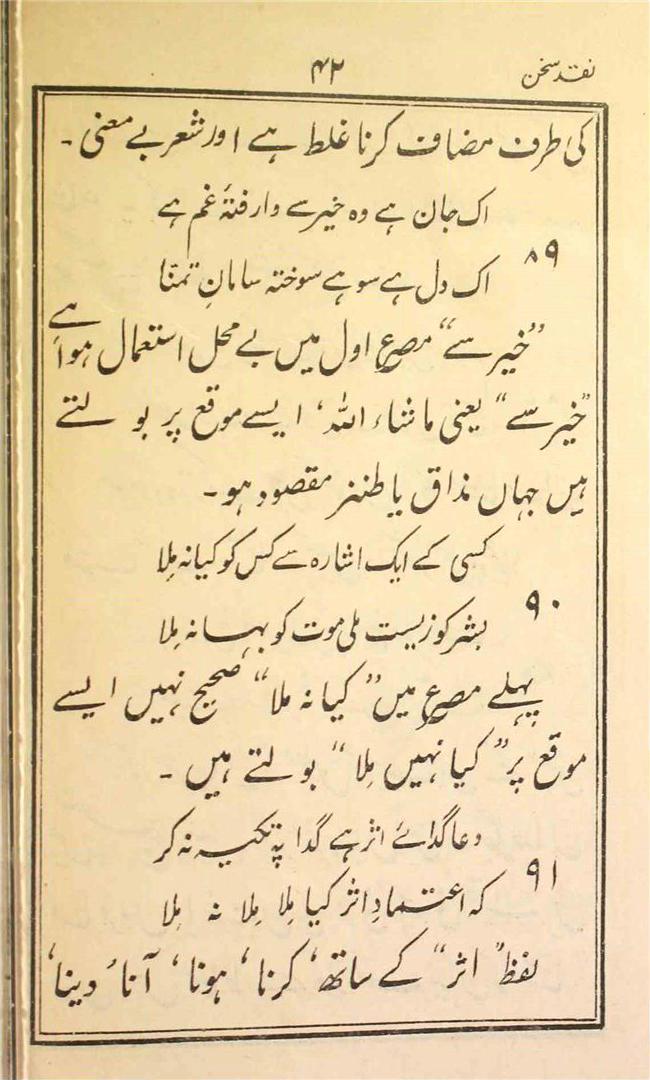 نقد سخن
۴۲
کی طرف مضاف کرنا غلط ہے اور شعر بے معنی ۔
اک جان ہے وہ خیر سے وارفتۂ غم ہے
۸۹
اک دل ہے سو ہے سوختہ سامانِ تمنّا
”خیر سے“ مصرع اول میں بے محل استعمال ہوا ہے
”خیر سے“ یعنی ماشاء اللہ، ایسے موقع پر بولتے
ہیں جہاں مذاق یا طنز مقصود ہو ۔
کسی کے ایک اشارہ سے کس کو کیا نہ مِلا
۹۰
بشر کو زیست ملی موت کو بہانہ مِلا
پہلے مصرع میں ”کیا نہ ملا“ صحیح نہیں ایسے
موقع پر ”کیا نہیں مِلا“ بولتے ہیں ۔
دعا گدائے اثر ہے گدا پہ تکیہ نہ کر
۹۱
کہ اعتمادِ اثر کیا مِلا مِلا نہ مِلا
لفظ ”اثر“ کے ساتھ، کرنا، ہونا، آنا، دینا،